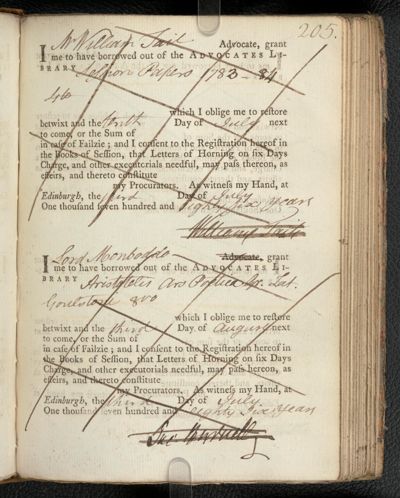 205.
I Mr William Tait Advocate, grant
me to have borrowed out of the ADVOCATES LI-
BRARY Session Papers 1783-84
which I oblige me to reſtore
betwixt and the tenth Day of July next
to come, or the Sum of
in caſe of Failzie; and I conſent to the Regiſtration hereof in
the Books of Seſſion, that Letters of Horning on ſix Days
Charge, and other executorials needful, may paſs thereon, as
effeirs, and thereto conſtitute
my Procurators. As witneſs my Hand, at
Edinburgh, the third Day of July
One thouſand ſeven hundred and eighty six years
William Tait
I Lord Monboddo Advocate, grant
me to have borrowed out of the ADVOCATES LI-
BRARY Aristotelis Ars Poetica Gr. Lat.
Goulstone 8vo
which I oblige me to reſtore
betwixt and the third Day of August next
to come, or the Sum of
in caſe of Failzie; and I conſent to the Regiſtration hereof in
the Books of Seſſion, that Letters of Horning on ſix Days
Charge, and other executorials needful, may paſs hereon, as
effeirs, and thereto conſtitute
my Procurators. As witneſs my Hand, at
Edinburgh, the third Day of July
One thouſand ſeven hundred and eighty six years
Jas Burnett